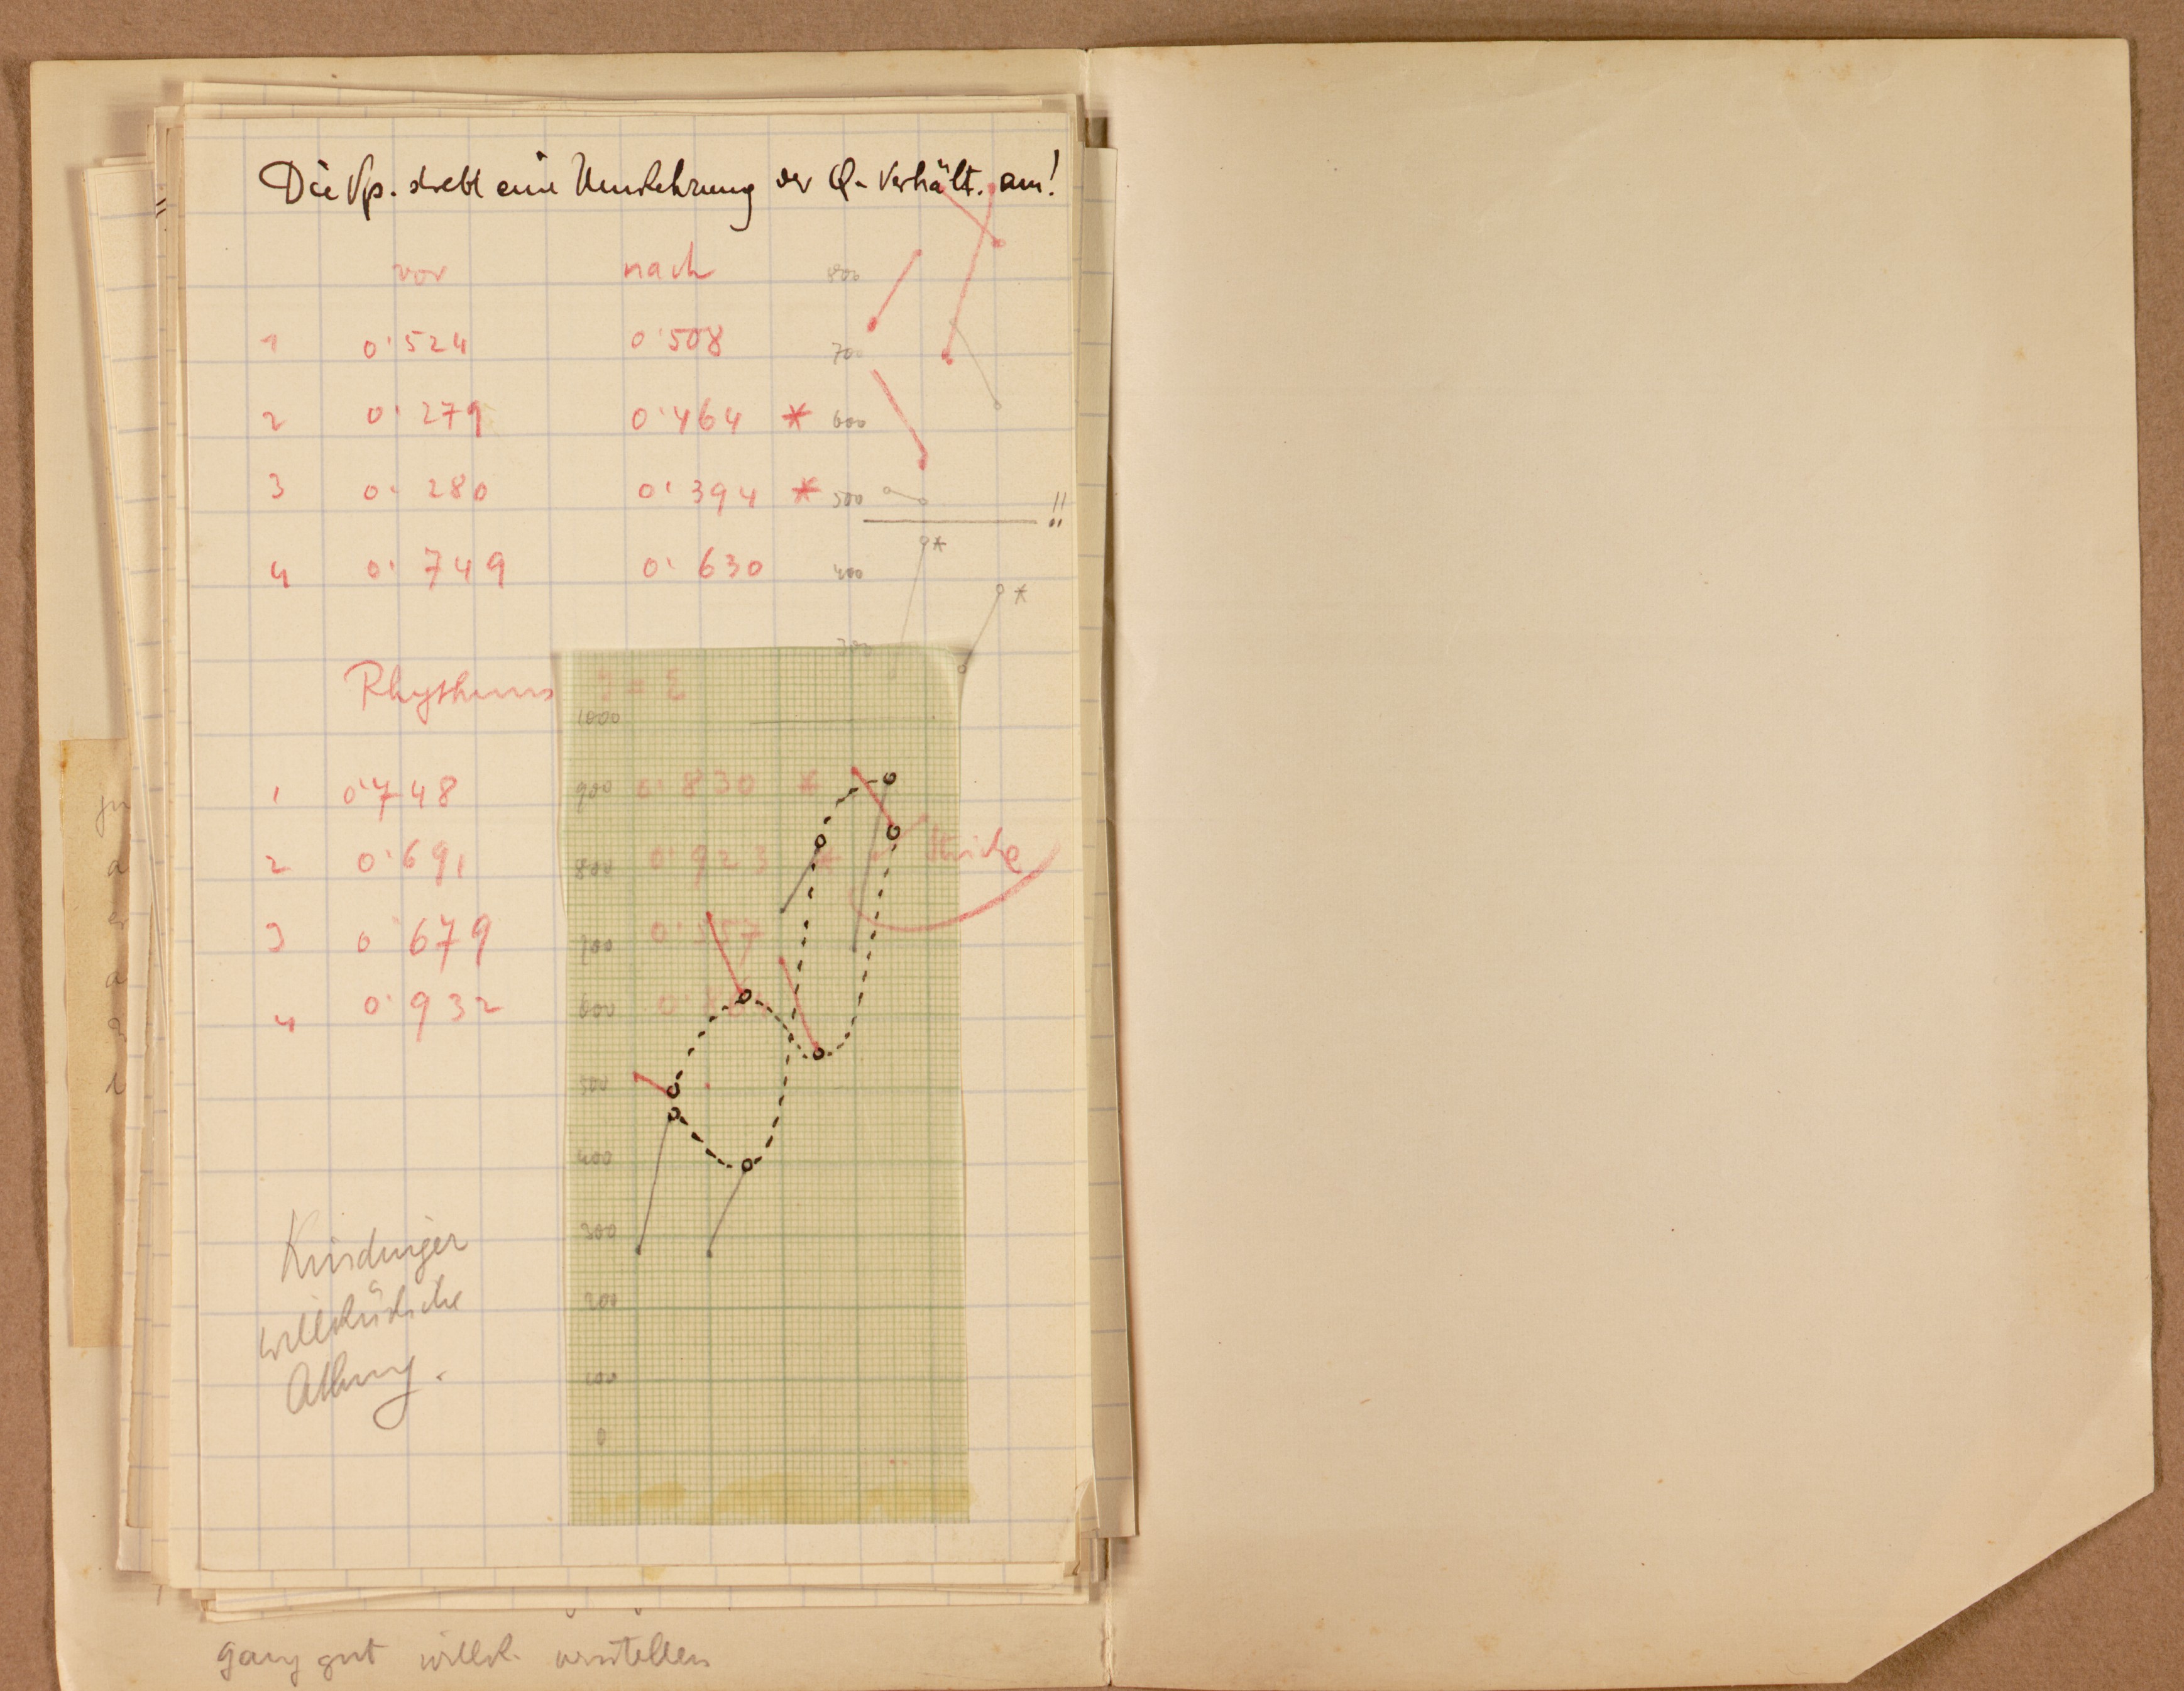 Die Vp. strebt eine Umkehrung der Q-Verhält. an!
vor nach
1 0·524 0·508
2 0·279 0·464 *
3 0·280 0·394 *
4 0·749 0·630
800
700
600
500 !!
*
400
*
300
Rhythmus
1 0·748 0·830 *
2 0·691 0·923 *
3 0·679
4 0·932
1000
900
800
700
600
500
400
300
200
100
0
Kindinger
willkürliche
Atmung.
ganz gut willk. verstellen